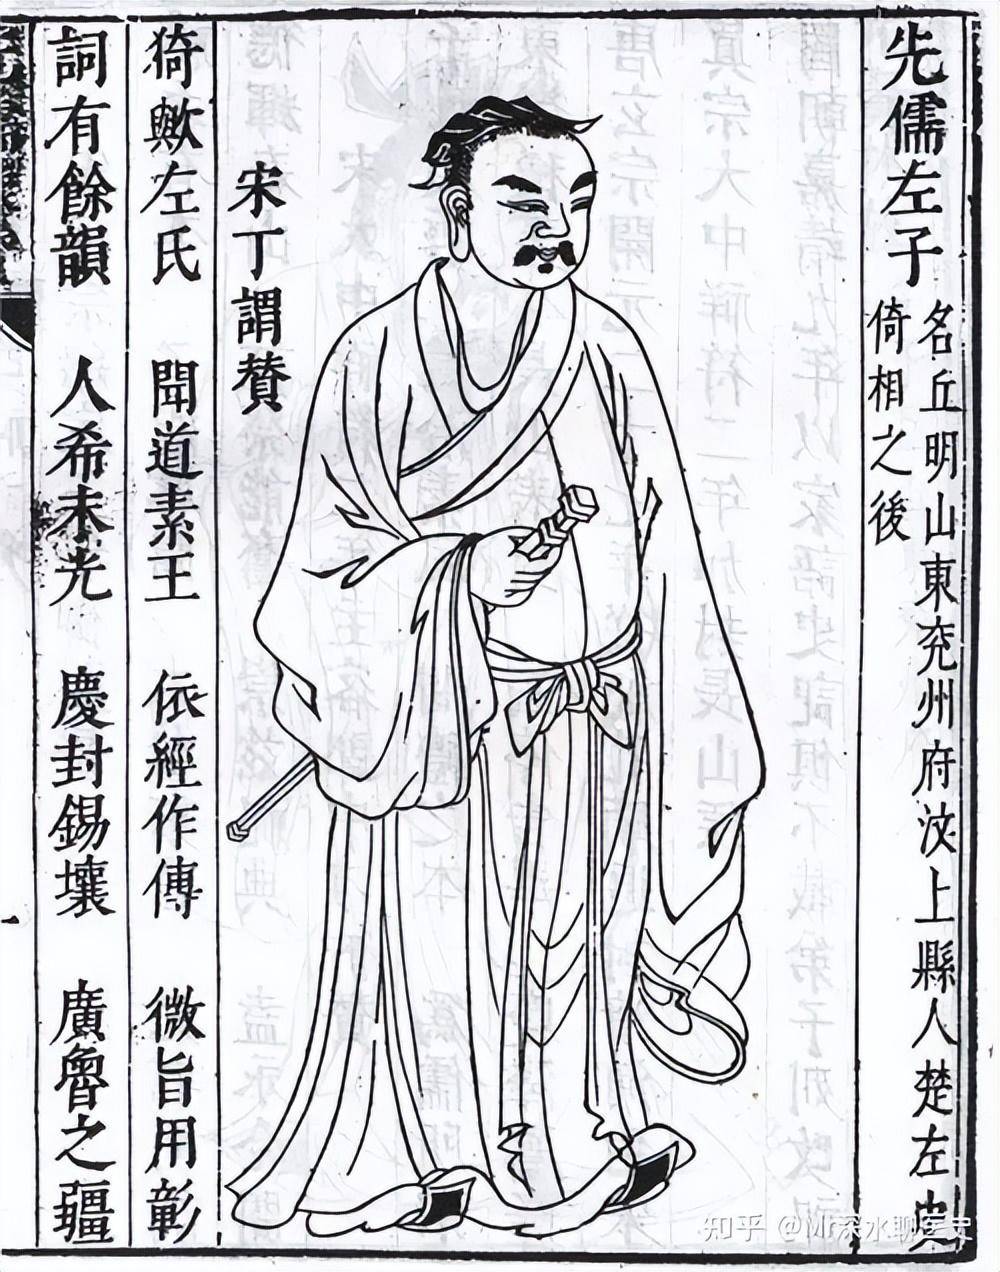 先儒左子
名丘明山東兖州府汶上縣人楚左史
倚相之後
宋丁謂贊
猗歟左氏 聞道素王 依經作傳 微旨用彰
詞有餘韻 人希末光 慶封錫壤 廣魯之疆
知乎 @Mr深水聊医史